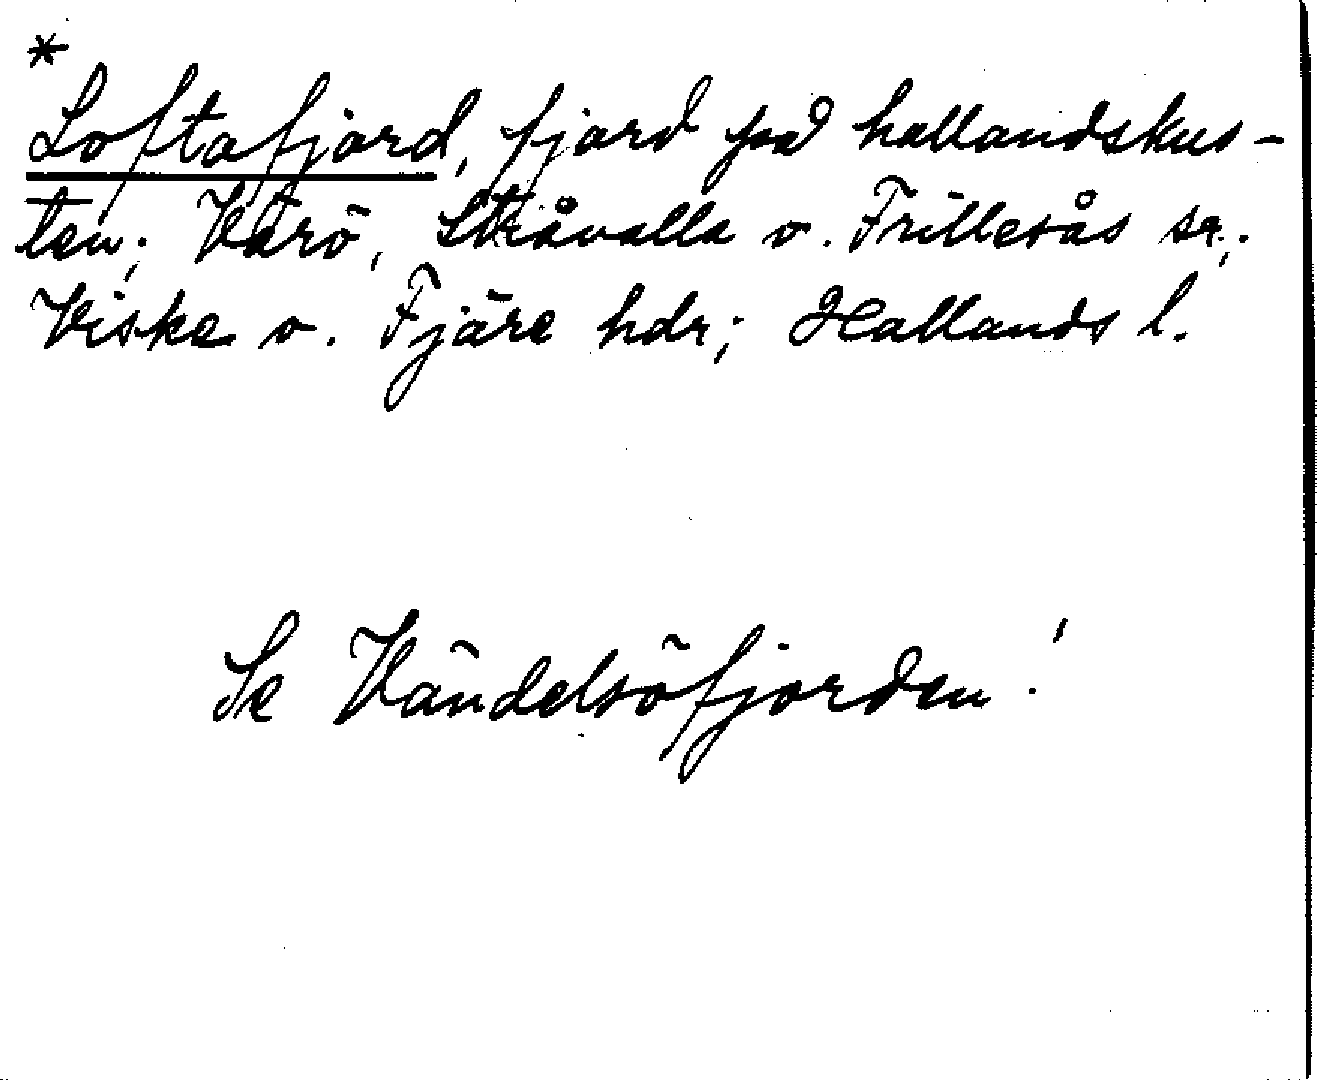 *
Loftafjord, fjord på hallandskus-
ten; Värö, Stråvalla o. Frillesås sr.;
Viske o. Fjäre hdr; Hallands l.
Se Vändelsöfjorden!